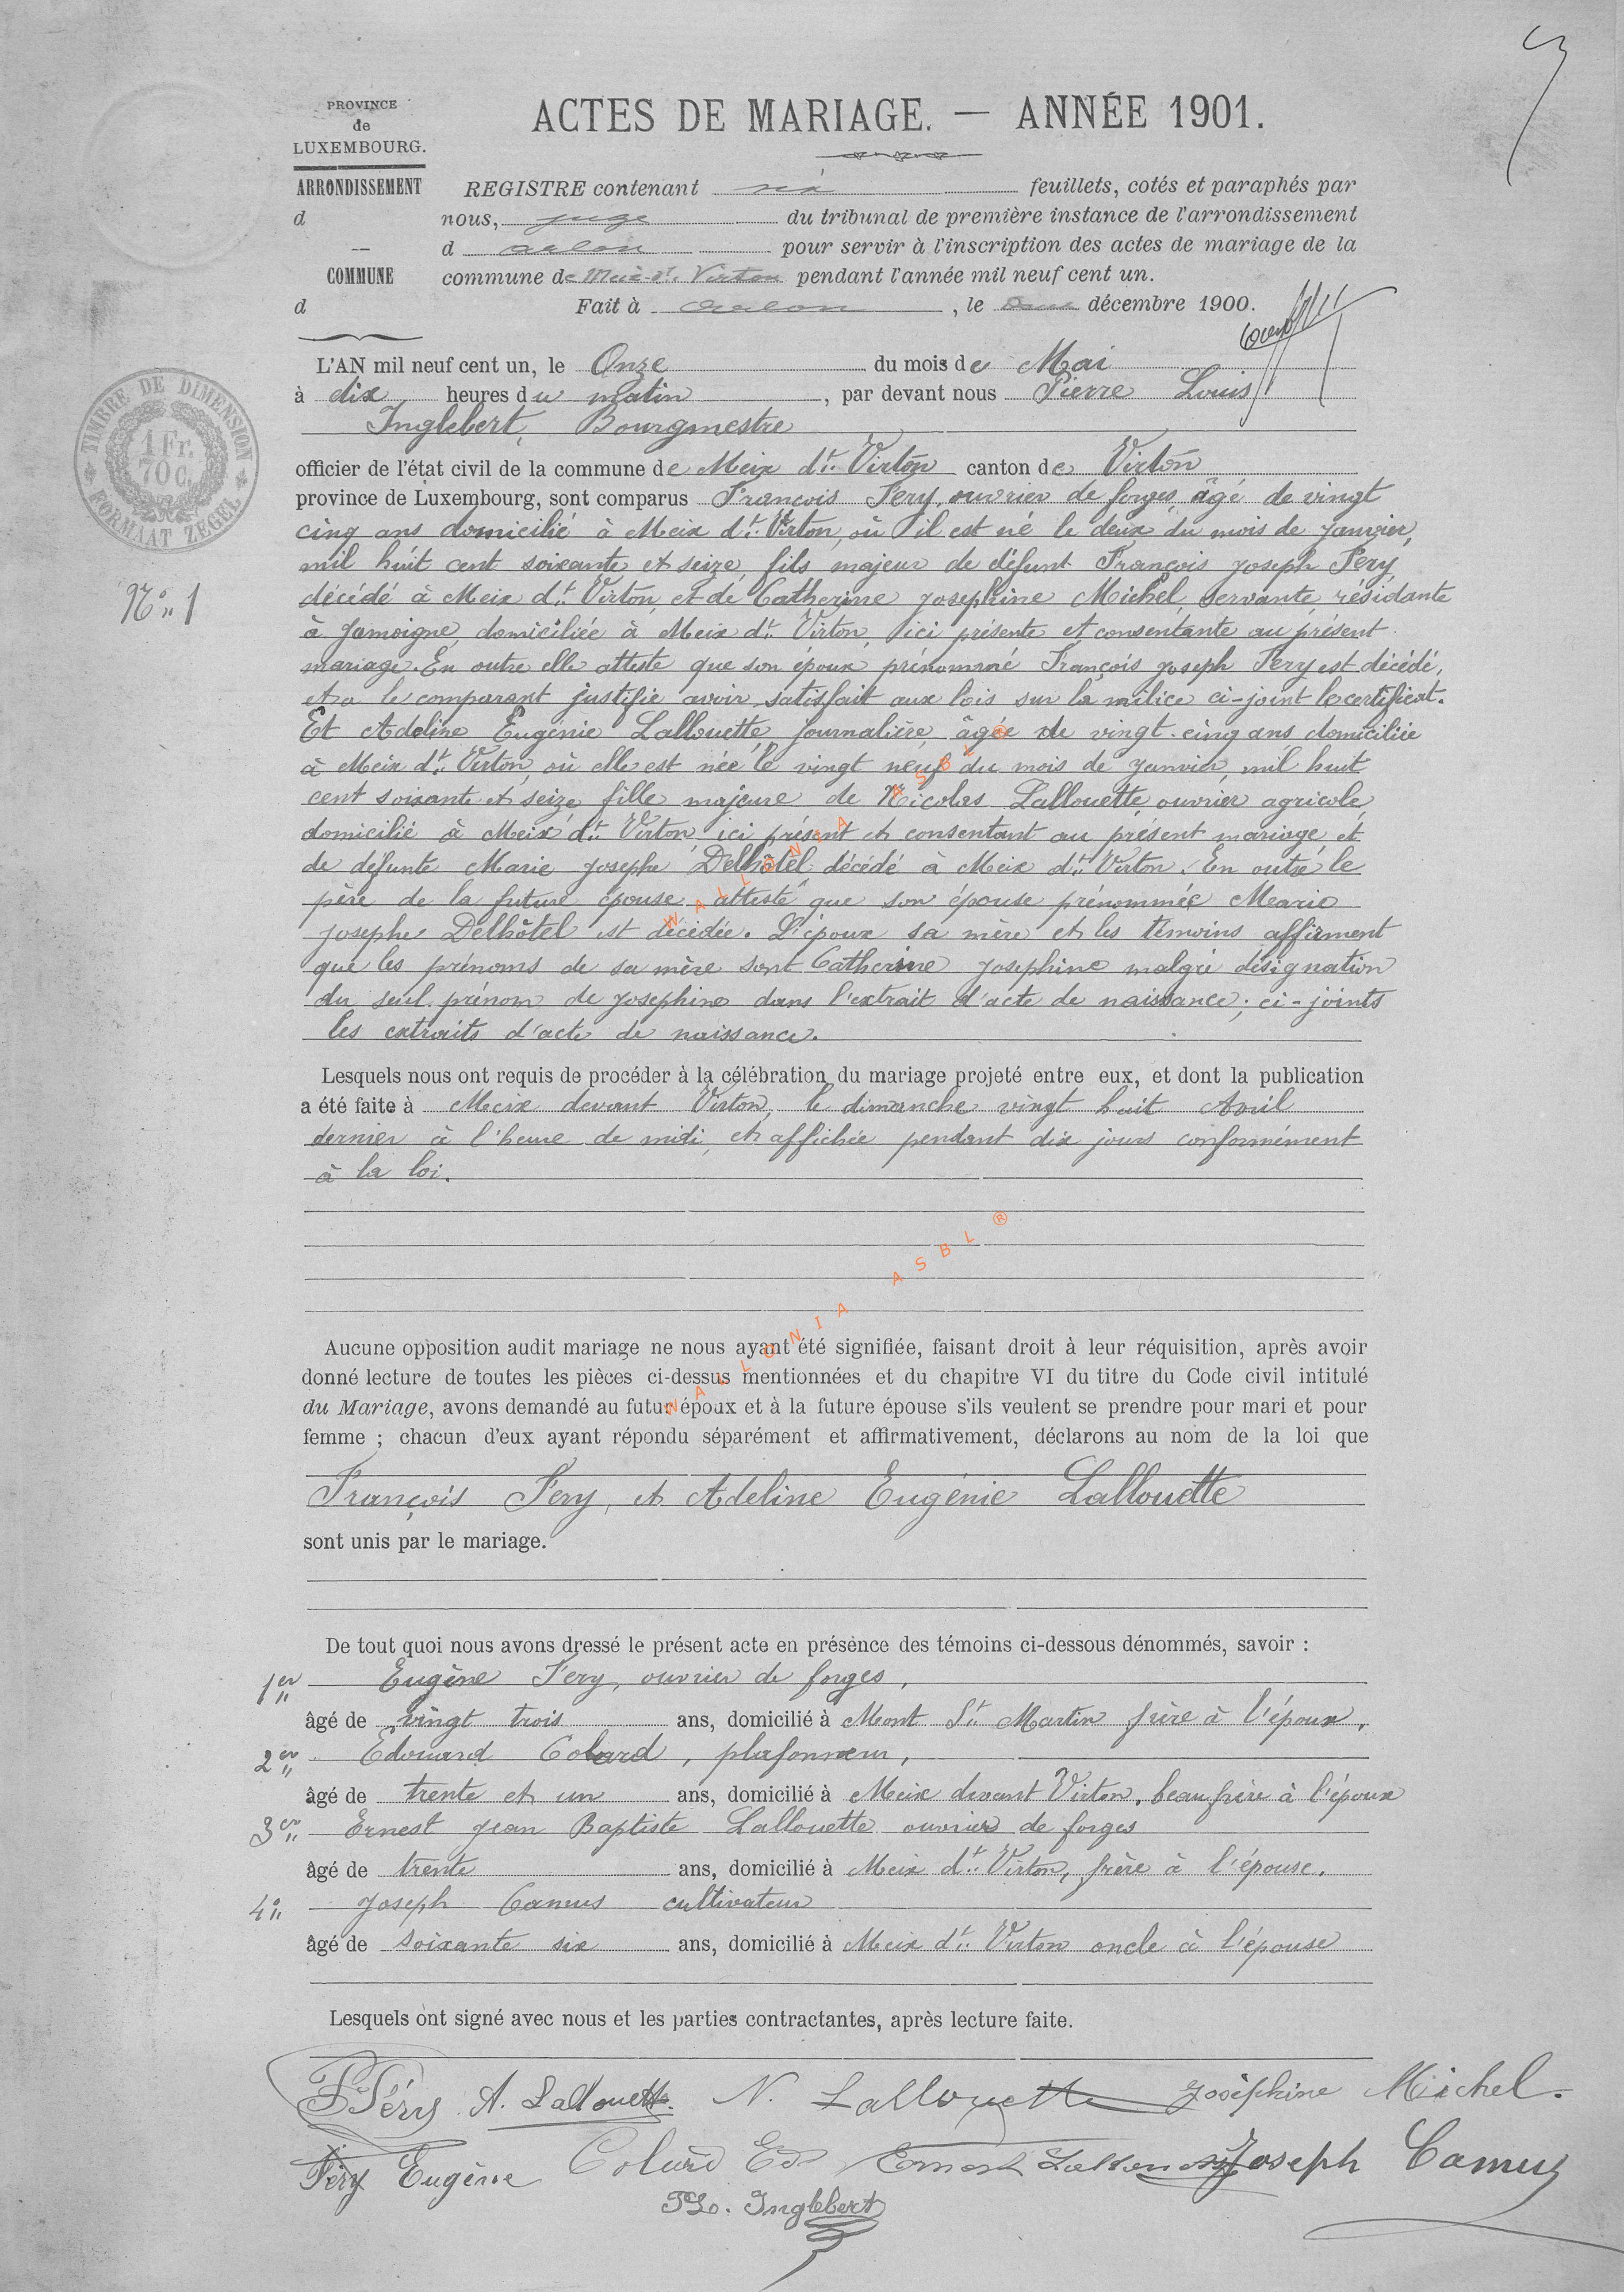 PROVINCE
de
LUXEMBOURG.
ARRONDISSEMENT
d
—
COMMUNE
d
ACTES DE MARIAGE. — ANNÉE 1901.
REGISTRE contenant six feuillets, cotés et paraphés par
nous, juge du tribunal de première instance de l'arrondissement
d arlon pour servir à l'inscription des actes de mariage de la
commune de Meix-dt. Virton pendant l'année mil neuf cent un.
Fait à arlon, le décembre 1900.
TIMBRE DE DIMENSION
1 Fr.
70 C.
FORMAAT ZEGEL
No. 1
L'AN mil neuf cent un, le Onze du mois de Mai
à dix heures du matin, par devant nous Pierre Louis
Inglebert, Bourgmestre
officier de l'état civil de la commune de Meix dt. Virton canton de Virton
province de Luxembourg, sont comparus François Fery, ouvrier de forges, âgé de vingt
cinq ans domicilié à Meix dt. Virton, où il est né le deux du mois de janvier,
mil huit cent soixante et seize, fils majeur de défunt François Joseph Fery,
décédé à Meix dt. Virton, et de Catherine Josephine Michel, servante, résidante
à Jamoigne, domiciliée à Meix dt. Virton, ici présente et consentante au présent
mariage. En outre elle atteste que son époux prénommé François Joseph Fery est décédé,
et a le comparant justifié avoir satisfait aux lois sur la milice ci-joint le certificat.
Et Adeline Eugénie Lallouette, journalière, âgée de vingt-cinq ans domiciliée
à Meix dt. Virton, où elle est née le vingt neuf du mois de janvier, mil huit
cent soixante et seize, fille majeure de Nicolas Lallouette, ouvrier agricole,
domicilié à Meix dt. Virton, ici présent et consentant au présent mariage et
de défunte Marie Josephe Delhôtel décédé à Meix dt. Virton. En outre le
père de la future épouse atteste que son épouse prénommée Marie
Josephe Delhôtel est décédée. L'époux sa mère et les témoins affirment
que les prénoms de sa mère sont Catherine Josephine malgré désignation
du seul prénom de Josephine dans l'extrait d'acte de naissance; ci-joints
les extraits d'acte de naissance.
Lesquels nous ont requis de procéder à la célébration du mariage projeté entre eux, et dont la publication
a été faite à Meix devant Virton, le dimanche vingt huit Avril
dernier à l'heure de midi, et affichée pendant dix jours conformément
à la loi.
WALLONIA ASBL ®
WALLONIA ASBL ®
Aucune opposition audit mariage ne nous ayant été signifiée, faisant droit à leur réquisition, après avoir
donné lecture de toutes les pièces ci-dessus mentionnées et du chapitre VI du titre du Code civil intitulé
du Mariage, avons demandé au futur époux et à la future épouse s'ils veulent se prendre pour mari et pour
femme ; chacun d'eux ayant répondu séparément et affirmativement, déclarons au nom de la loi que
François Fery, et Adeline Eugénie Lallouette
sont unis par le mariage.
De tout quoi nous avons dressé le présent acte en présence des témoins ci-dessous dénommés, savoir :
1er Eugène Fery, ouvrier de forges,
âgé de vingt trois ans, domicilié à Mont St. Martin frère à l'époux.
2er Edouard Colard, plafonneur,
âgé de trente et un ans, domicilié à Meix devant Virton, beau frère à l'époux
3er Ernest Jean Baptiste Lallouette ouvrier de forges
âgé de trente ans, domicilié à Meix dt. Virton, frère à l'épouse.
4o Joseph Camus cultivateur
âgé de soixante six ans, domicilié à Meix dt. Virton oncle à l'épouse
Lesquels ont signé avec nous et les parties contractantes, après lecture faite.
F Féry A. Lallouette. N. Lallouette Joséphine Michel.
Féry Eugène Colard Ed Ernest Lallouette Joseph Camus
PL. Inglebert